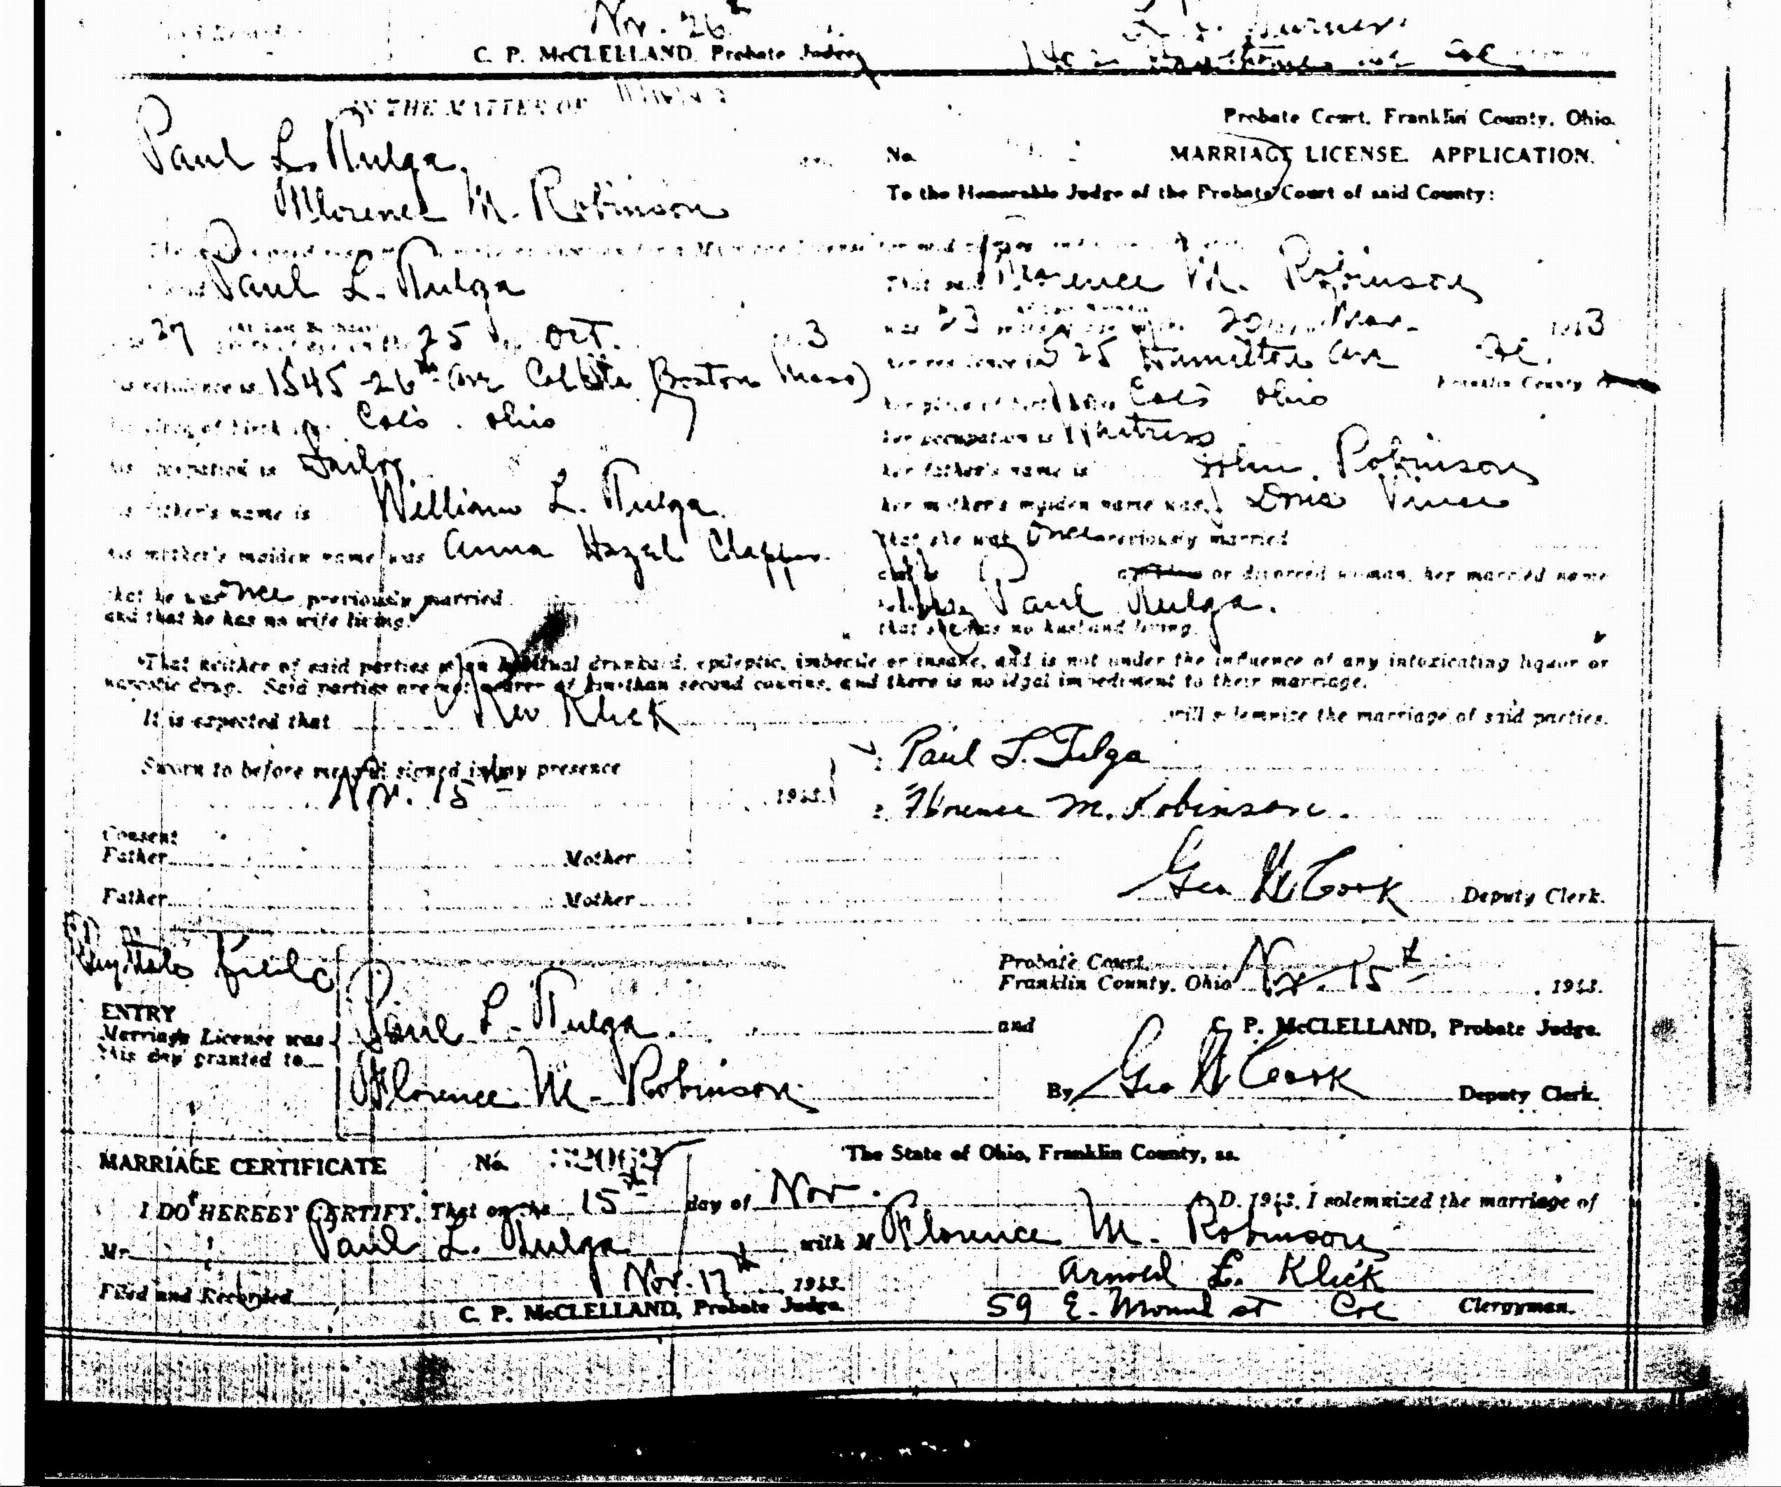 Nov. 26th
C. P. McCLELLAND, Probate Judge
IN THE MATTER OF
Paul L. Tulga
Florence M. Robinson
Paul L. Tulga
27 25 Oct. 3
his residence is 1545-26th Ave Cols (Boston Mass)
his place of birth is Cols. Ohio
his occupation is Sailor
his father's name is William L. Tulga
his mother's maiden name was Anna Hazel Clapper
that he was once previously married
and that he has no wife living.
Probate Court, Franklin County, Ohio.
No. MARRIAGE LICENSE APPLICATION.
To the Honorable Judge of the Probate Court of said County:
That said Florence M. Robinson
was 23 20 Mar. 1943
her residence is 525 Hamilton Ave Col.
Franklin County
her place of birth is Cols Ohio
her occupation is Waitress
her father's name is John Robinson
her mother's maiden name was
that she was once previously married
or divorced woman, her married name
Paul Tulga.
that she has no husband living.
That neither of said parties is an habitual drunkard, epileptic, imbecile or insane, and is not under the influence of any intoxicating liquor or
narcotic drug. Said parties are not nearer of kin than second cousins, and there is no legal impediment to their marriage.
It is expected that Rev Klick will solemnize the marriage of said parties.
Sworn to before me and signed in my presence
Nov. 15th 1943.
Paul L. Tulga
Florence M. Robinson.
Consent
Father Mother
Father Mother
Geo W Cook Deputy Clerk.
ENTRY
Marriage License was
this day granted to
Paul L. Tulga
and
Florence M. Robinson
Probate Court
Franklin County, Ohio Nov. 15th, 1943.
C. P. McCLELLAND, Probate Judge.
By Geo W Cook Deputy Clerk.
MARRIAGE CERTIFICATE No. The State of Ohio, Franklin County, ss.
I DO HEREBY CERTIFY, That on the 15th day of Nov. A. D. 1943, I solemnized the marriage of
Mr. Paul L. Tulga with M Florence M. Robinson
Filed and Recorded Nov. 17th 1943. Arnold L. Klick
C. P. McCLELLAND, Probate Judge. 59 E. Mound st Col Clergyman.